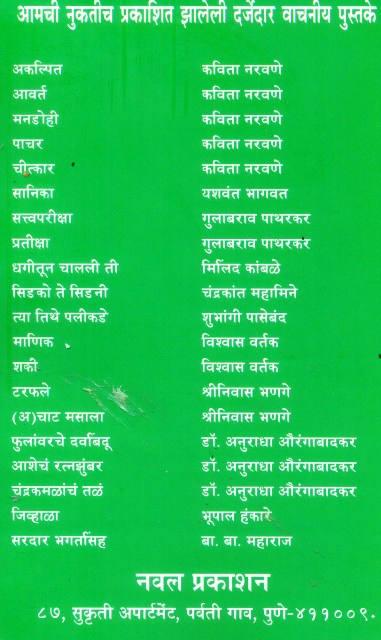 आमची नुकतीच प्रकाशित झालेली दर्जेदार वाचनीय पुस्तके
अकल्पित कविता नरवणे
आवर्त कविता नरवणे
मनडोही कविता नरवणे
पाचर कविता नरवणे
चीत्कार कविता नरवणे
सानिका यशवंत भागवत
सत्त्वपरीक्षा गुलाबराव पाथरकर
प्रतीक्षा गुलाबराव पाथरकर
धगीतून चालली ती मिलिंद कांबळे
सिडको ते सिडनी चंद्रकांत महामिने
त्या तिथे पलीकडे शुभांगी पासेबंद
माणिक विश्वास वर्तक
शकी विश्वास वर्तक
टरफले श्रीनिवास भणगे
(अ)चाट मसाला श्रीनिवास भणगे
फुलांवरचे दवबिंदू डॉ. अनुराधा औरंगाबादकर
आशेचं रत्नझुंबर डॉ. अनुराधा औरंगाबादकर
चंद्रकमळांचं तळं डॉ. अनुराधा औरंगाबादकर
जिव्हाळा भूपाल हंकारे
सरदार भगतसिंह बा. बा. महाराज
नवल प्रकाशन
८७, सुकृती अपार्टमेंट, पर्वती गाव, पुणे-४११००९.